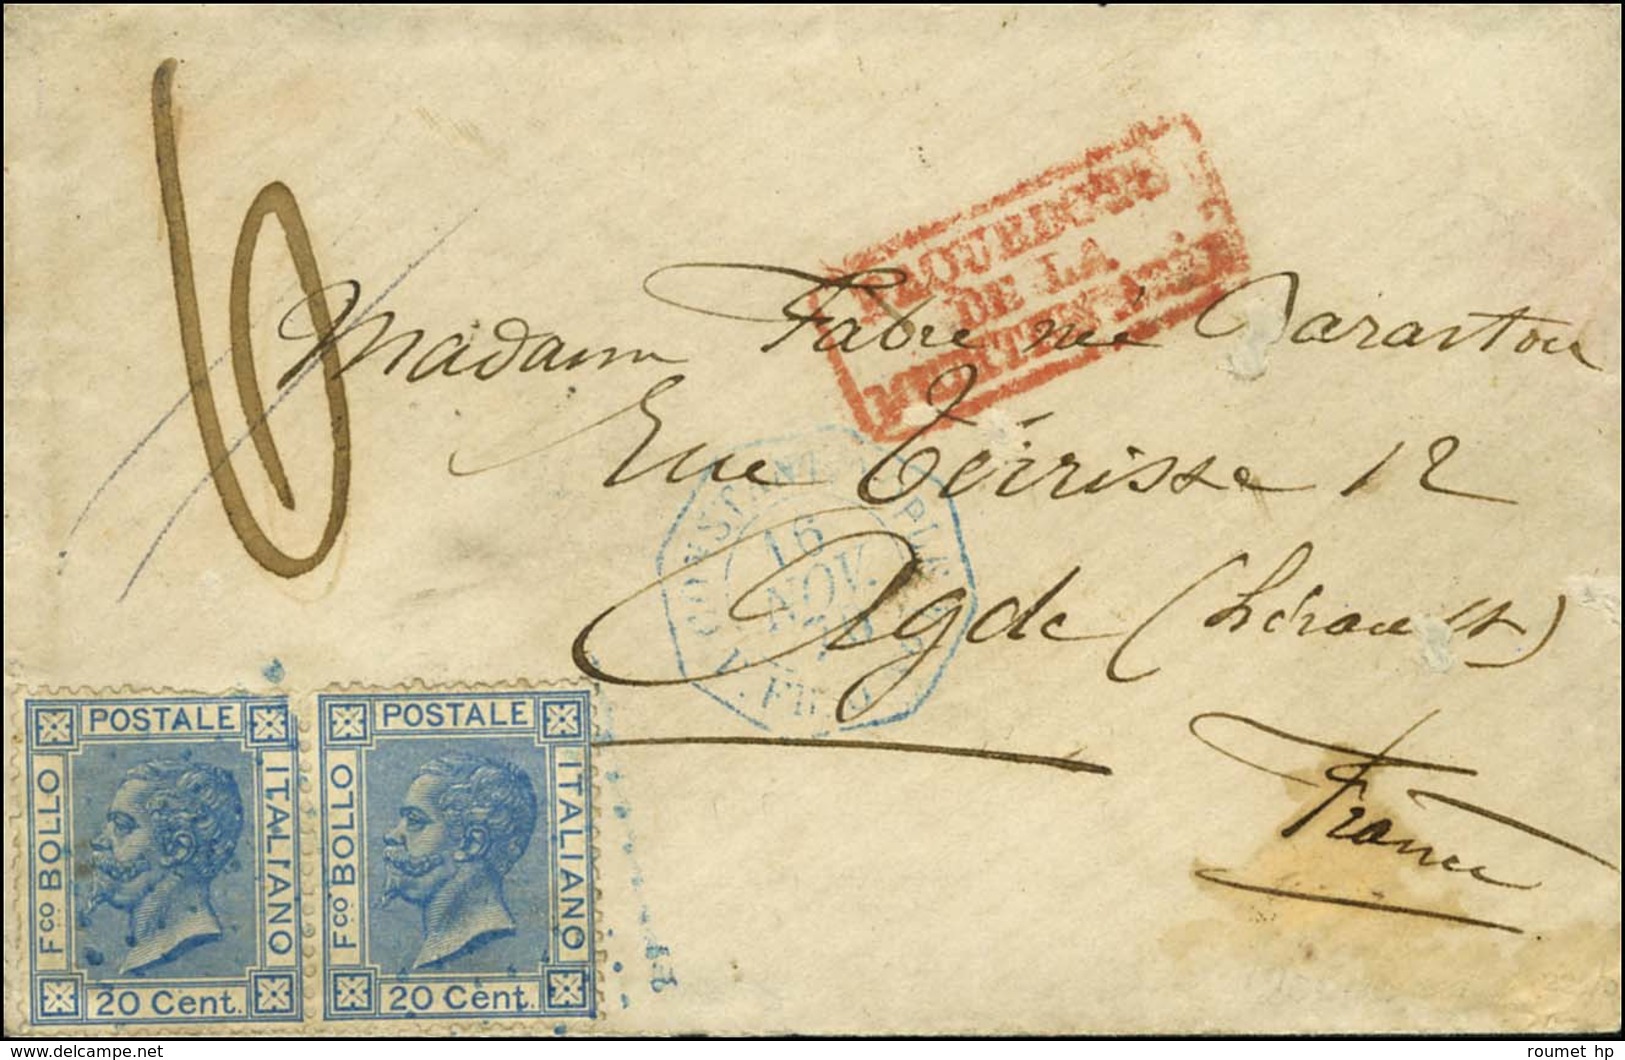 6
PAQUEBOTS
DE LA
MÉDITERRANÉE
Madame Fabre née
Rue Térrisse 12
Agde (Hérault)
France
CONSTANTINOPLE
16
NOV.
POSTALE
Fco BOLLO
ITALIANO
20 Cent.
POSTALE
Fco BOLLO
ITALIANO
20 Cent.
roumet hp